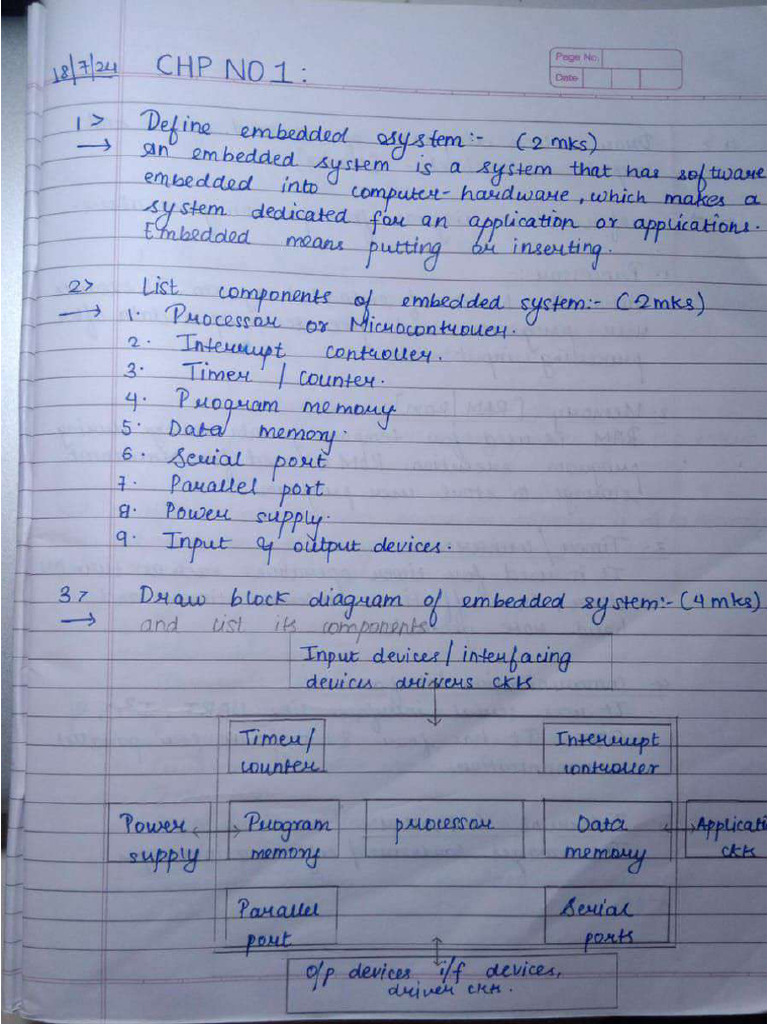 18/7/24 CHP NO 1:
Page No.
Date
1> Define embedded system:- (2 mks)
→ An embedded system is a system that has software
embedded into computer-hardware, which makes a
system dedicated for an application or applications.
Embedded means putting or inserting.
2> List components of embedded system:- (2mks)
→ 1. Processor or Microcontroller.
2. Interrupt controller.
3. Timer / counter.
4. Program memory
5. Data memory.
6. Serial port
7. Parallel port
8. Power supply.
9. Input & output devices.
3> Draw block diagram of embedded system:- (4 mks)
→ and list its components
Input devices / interfacing
devices drivers ckts
Timer/
counter
Interrupt
controller
Power
supply
Program
memory
processor
Data
memory
Applicati
ckts
Parallel
port
Serial
ports
o/p devices i/f devices,
driver ckts.